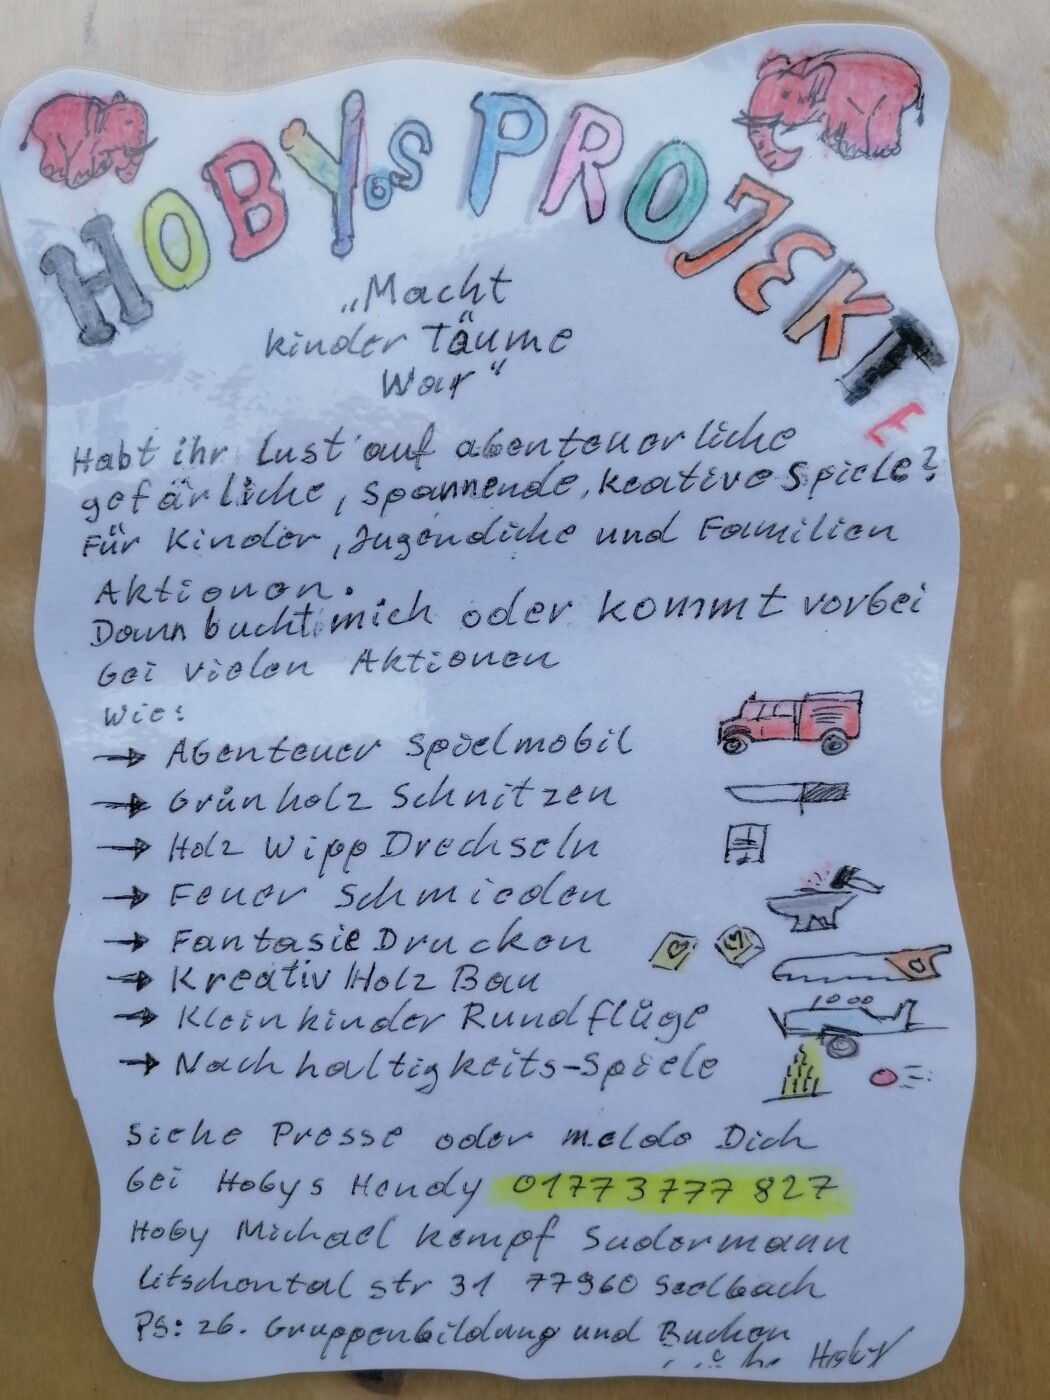 HOBYs PROJEKTE
„Macht
kinder Täume
War"
Habt ihr Lust auf abenteuerliche
gefärliche, spannende, keative Spiele?
Für Kinder, Jugendliche und Familien
Aktionen.
Dann bucht mich oder kommt vorbei
bei vielen Aktionen
wie:
→ Abenteuer Spielmobil
→ Grünholz Schnitzen
→ Holz Wipp Drechseln
→ Feuer Schmieden
→ Fantasie Drucken
→ Kreativ Holz Bau
→ Kleinkinder Rundflüge
→ Nachhaltigkeits-Spiele
Siehe Presse oder melde Dich
bei Hobys Handy 01773777827
Hoby Michael Kempf Sudermann
Litschental str 31 77960 Seelbach
PS: z.b. Gruppenbildung und Buchen
Hoby